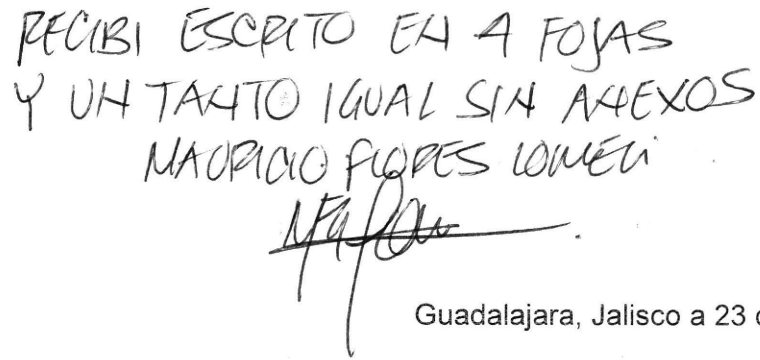 RECIBI ESCRITO EN 4 FOJAS
Y UN TANTO IGUAL SIN ANEXOS
MAURICIO FLORES LOMELI
Guadalajara, Jalisco a 23